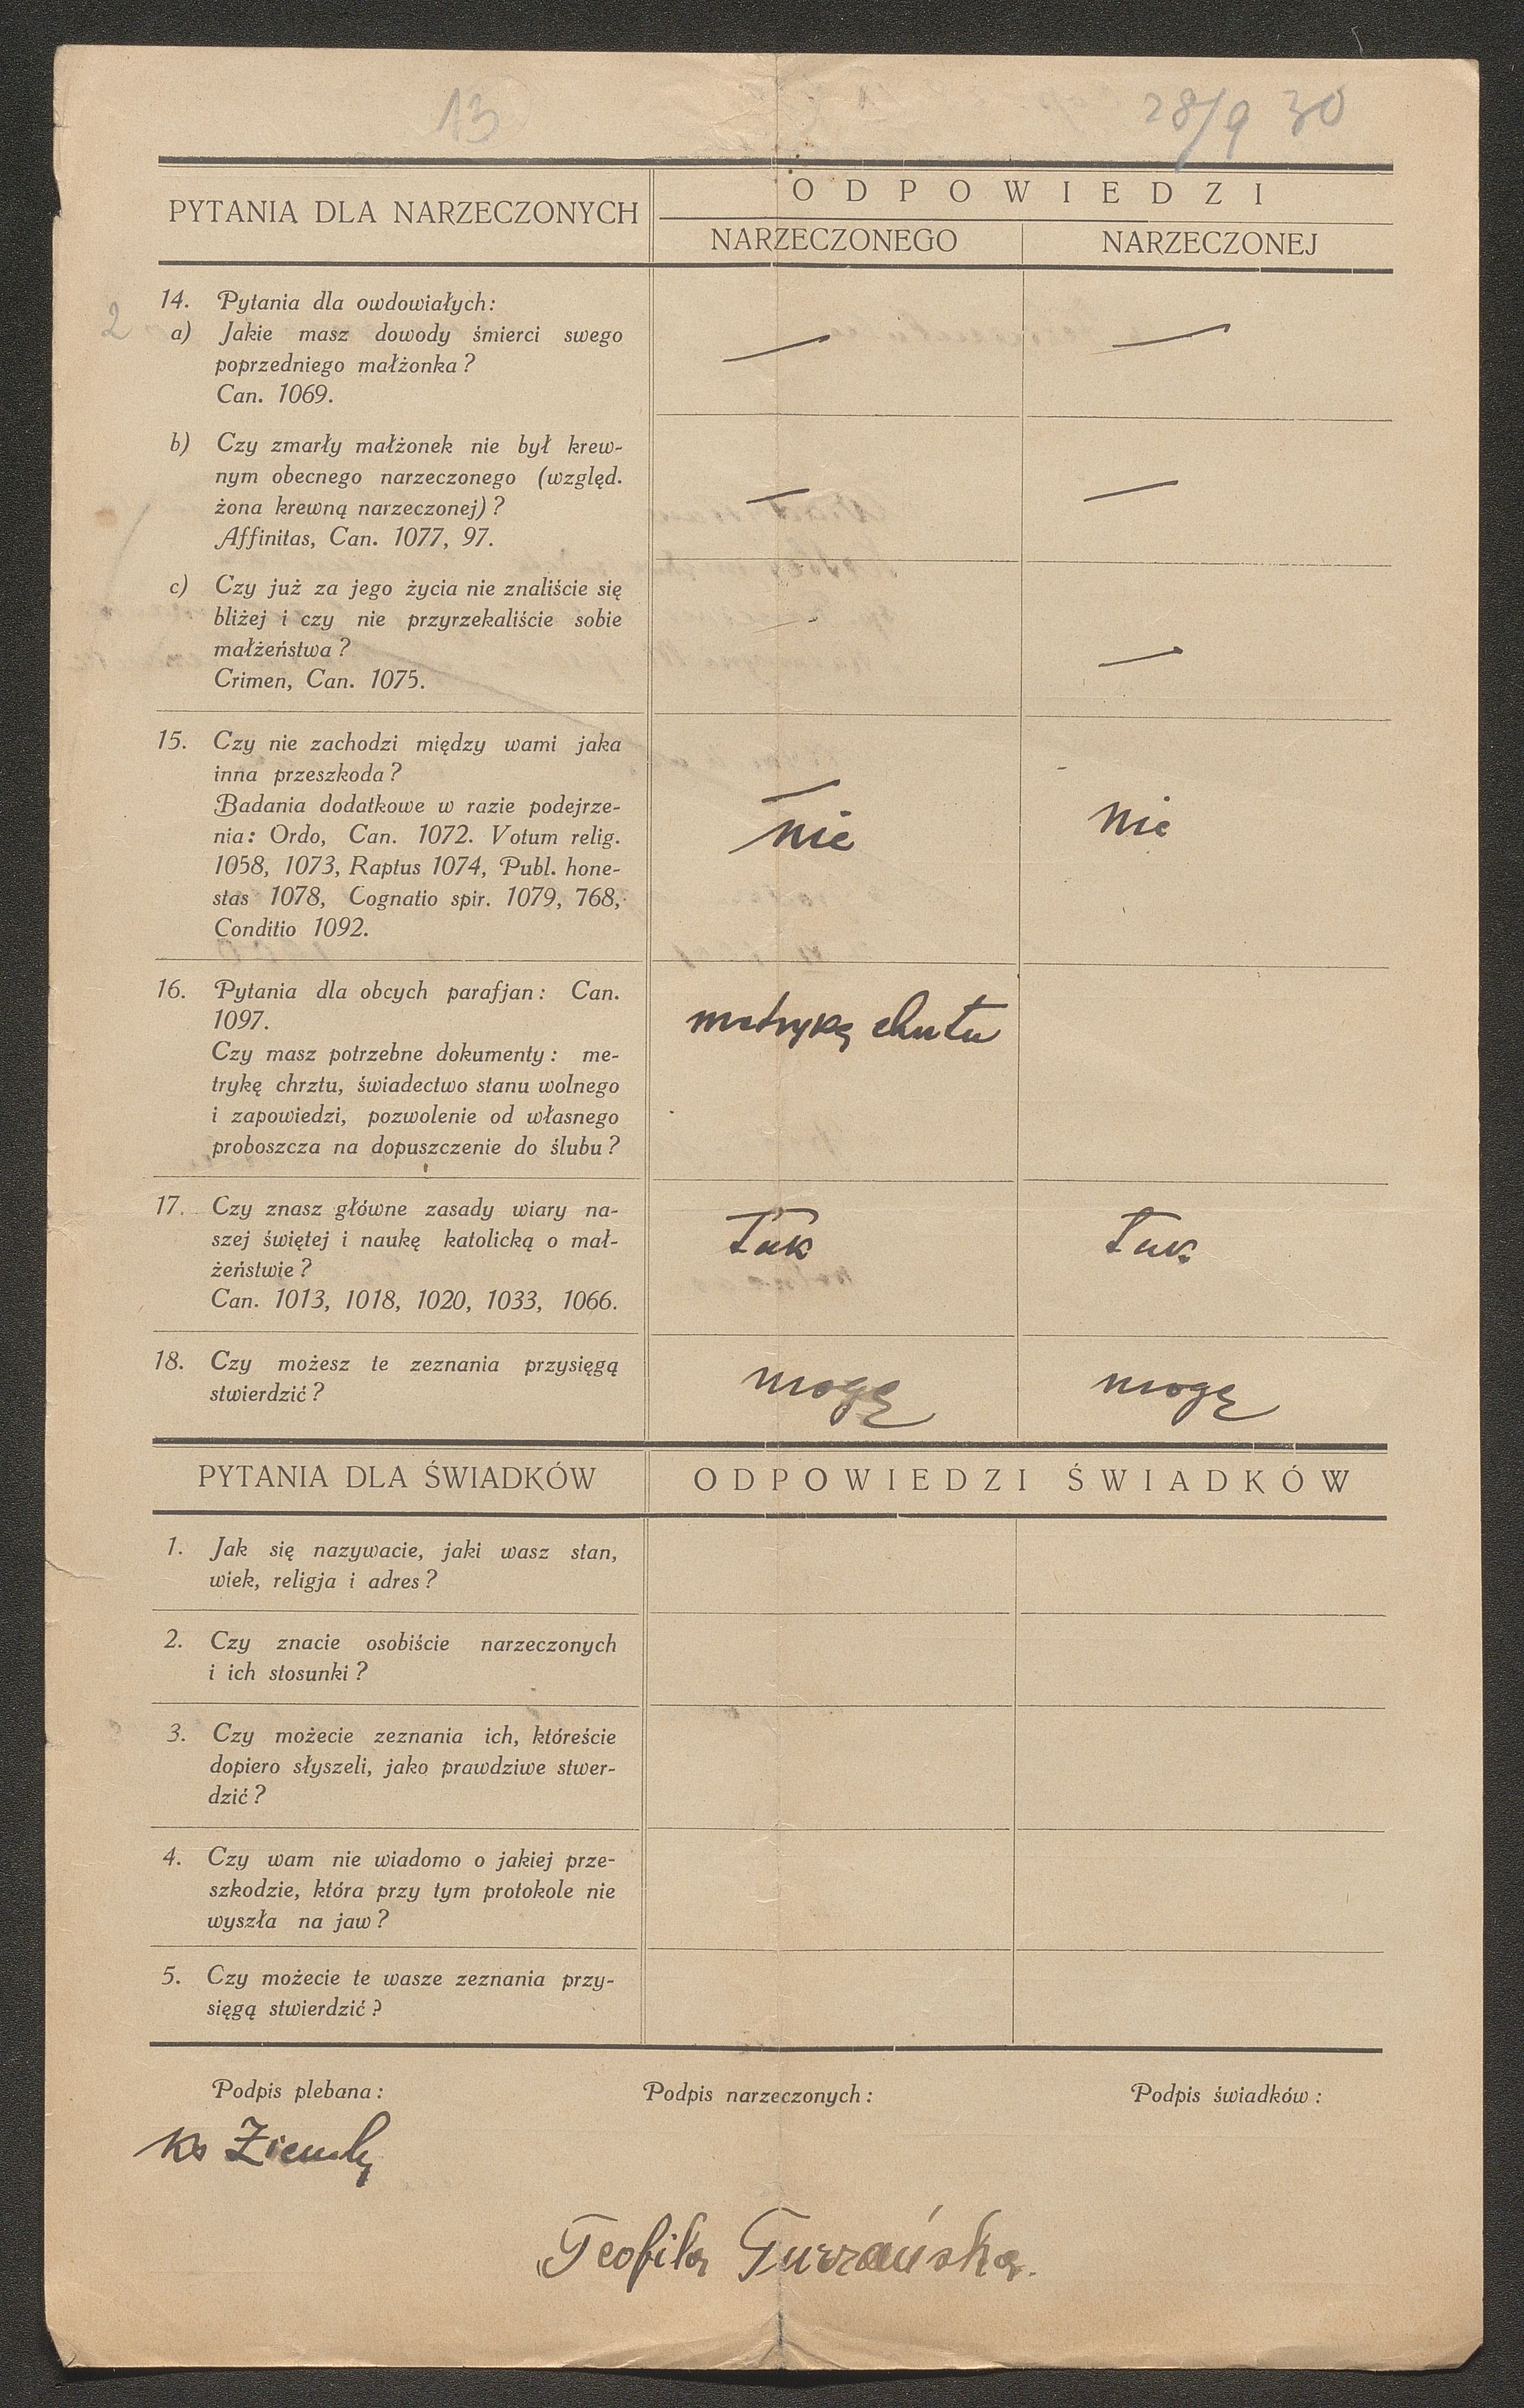 13
28/9 30
PYTANIA DLA NARZECZONYCH
ODPOWIEDZI
NARZECZONEGO
NARZECZONEJ
2
14. Pytania dla owdowiałych:
a) Jakie masz dowody śmierci swego
poprzedniego małżonka?
Can. 1069.
—
—
b) Czy zmarły małżonek nie był krew-
nym obecnego narzeczonego (względ.
żona krewną narzeczonej)?
Affinitas, Can. 1077, 97.
—
—
c) Czy już za jego życia nie znaliście się
bliżej i czy nie przyrzekaliście sobie
małżeństwa?
Crimen, Can. 1075.
—
—
15. Czy nie zachodzi między wami jaka
inna przeszkoda?
Badania dodatkowe w razie podejrze-
nia: Ordo, Can. 1072. Votum relig.
1058, 1073, Raptus 1074, Publ. hone-
stas 1078, Cognatio spir. 1079, 768,
Conditio 1092.
nie
nie
16. Pytania dla obcych parafjan: Can.
1097.
Czy masz potrzebne dokumenty: me-
trykę chrztu, świadectwo stanu wolnego
i zapowiedzi, pozwolenie od własnego
proboszcza na dopuszczenie do ślubu?
metrykę chrztu
17. Czy znasz główne zasady wiary na-
szej świętej i naukę katolicką o mał-
żeństwie?
Can. 1013, 1018, 1020, 1033, 1066.
Tak
Tak
18. Czy możesz te zeznania przysięgą
stwierdzić?
mogę
mogę
PYTANIA DLA ŚWIADKÓW
ODPOWIEDZI ŚWIADKÓW
1. Jak się nazywacie, jaki wasz stan,
wiek, religja i adres?
2. Czy znacie osobiście narzeczonych
i ich stosunki?
3. Czy możecie zeznania ich, któreście
dopiero słyszeli, jako prawdziwe stwer-
dzić?
4. Czy wam nie wiadomo o jakiej prze-
szkodzie, która przy tym protokole nie
wyszła na jaw?
5. Czy możecie te wasze zeznania przy-
sięgą stwierdzić?
Podpis plebana:
Podpis narzeczonych:
Podpis świadków:
ks
Teofila Turzańska.